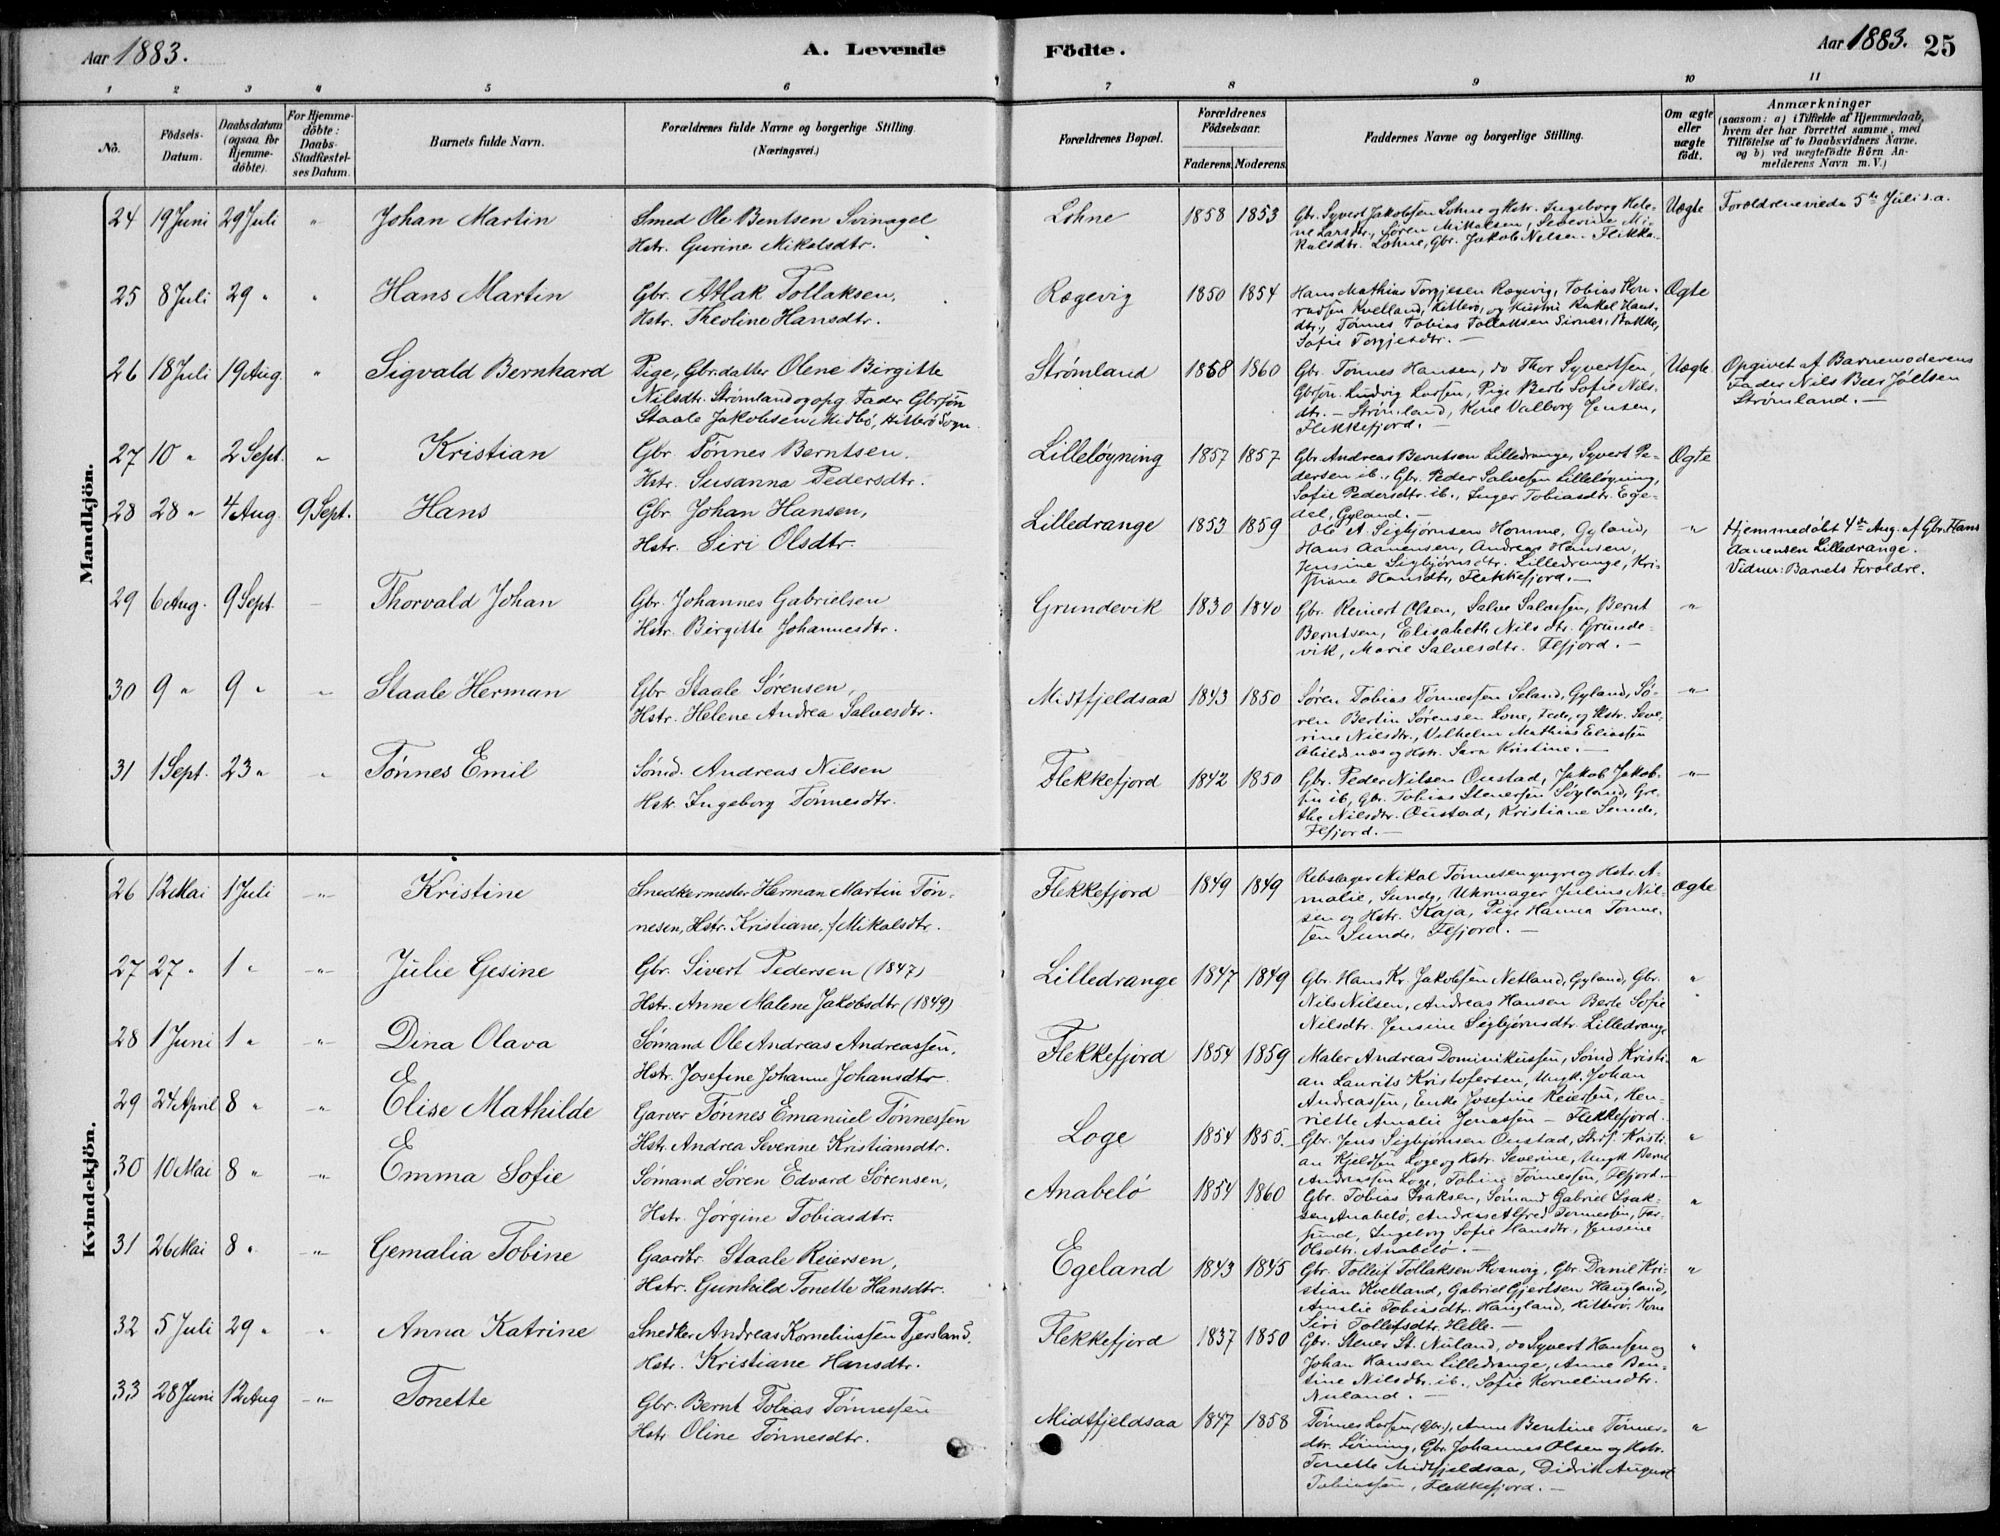 Aar 1883. A. Levende Födte. Aar 1883. 25
1 2 3 4 5 6 7 8 9 10 11
No.
Födsels-Datum.
Daabsdatum (ogsaa for Hjemme-döbte).
For Hjemme-döbte: Daabs-Stadfæstel-ses Datum.
Barnets fulde Navn.
Forældrenes fulde Navne og borgerlige Stilling. (Næringsvei.)
Forældrenes Bopæl.
Forældrenes Födselsaar.
Faderens. Moderens.
Faddernes Navne og borgerlige Stilling.
Om ægte eller uægte födt.
Anmærkninger
(saasom: a) i Tilfælde af Hjemmedaab, hvem der har forrettet samme, med Tilföielse af to Daabsvidners Navne, og b) ved uægtefödte Börn An-melderens Navn m. V.)
Mandkjön.
24 19 Juni 29 Juli " Johan Martin
Smed Ole Bentsen Svinagel
Hstr. Gurine Mikalsdtr.
Lohne 1858 1853
Gbr. Syvert Jakobsen Lohne og Hstr. Ingeborg Hele-
ne Larsdtr., Søren Mikalsen, Severine Mi-
kalsdtr. Lohne, Gbr. Jakob Nilsen. Flikka.
Uægte Forældrene viede 5te Juli s.a.
25 8 Juli 29 " " Hans Martin
Gbr. Atlak Tollaksen,
Hstr. Theoline Hansdtr.
Rægevig 1850 1854
Hans Mathias Torgjesen Rægevig, Tobias Kon-
radsen Kvelland, Hitterø, og Hustru Rakel Hans-
dtr., Tønnes Tobias Tollaksen Sirnes, Bakke,
Sofie Torgjesdtr. —
Ægte
26 18 Juli 19 Aug. " Sigvald Bernhard
Pige, Gbr.datter Olene Birgitte
Nilsdtr. Strømland og opg. Fader Gbrsøn
Staale Jakobsen Midbø, Hitterø Sogn.
Strømland 1858 1860
Gbr. Tønnes Hansen, do Thor Syvertsen,
Gbrsøn. Ludvig Larsen, Pige Berte Sofie Nils-
dtr. — Strømland, Kone Valborg Jensen,
Flekkefjord. —
Uægte. Opgivet af Barnemoderens
Fader Nils Beer Jøelsen
Strømland. —
27 10 " 2 Sept. " Kristian
Gbr. Tønnes Berntsen.
Hstr. Susanna Pedersdtr.
Lilleløgning 1857 1857
Gbr. Andreas Berntsen Lilledrange, Syvert Pe-
dersen ib., Gbr. Peder Salvesen Lilleløgning,
Sofie Pedersdtr. ib., Inger Tobiasdtr. Ege-
del, Gyland. —
Ægte
28 28 " 4 Aug. 9 Sept. Hans
Gbr. Johan Hansen,
Hstr. Siri Olsdtr.
Lilledrange 1853 1859
Ole A. Sigbjørnsen Homme, Gyland,
Hans Aanensen, Andreas Hansen,
Jensine Sigbjørnsdtr. Lilledrange, Kri-
stiane Hansdtr., Flekkefjord. —
" Hjemmedøbt 4de Aug. af Gbr. Hans
Aanensen Lilledrange.
Vidner: Barnets Forældre.
29 6 Aug. 9 Sept. — Thorvald Johan
Gbr. Johannes Gabrielsen
Hstr. Birgitte Johannesdtr.
Grundevik 1830 1840
Gbr. Reinert Olsen, Salve Salvesen, Bernt
Berntsen, Elisabeth Nilsdtr. Grunde-
vik, Marie Salvesdtr. Flfjord. —
"
30 9 " 9 " " Staale Herman
Gbr. Staale Sørensen,
Hstr. Helene Andrea Salvesdtr.
Midtfjeldsaa 1843 1850
Søren Tobias Tønnessen Seland, Gyland, Sø-
ren Bertin Sørensen Lone, Fede, og Hstr. Seve-
rine Nilsdtr., Vilhelm Mathias Eliassen
Abildsnæs og Hstr. Sara Kristine. —
"
31 1 Sept. 23 " " Tønnes Emil
Sømd. Andreas Nilsen
Hstr. Ingeborg Tønnesdtr.
Flekkefjord 1842 1850
Gbr. Peder Nilsen Oustad, Jakob Jakob-
sen ib., Gbr. Tobias Stenersen Søyland, Gre-
the Nilsdtr. Oustad, Kristiane Sunde,
Flfjord. —
"
Kvindekjön.
26 12 Mai 1 Juli " Kristine
Snedkermester Herman Martin Tøn-
nesen, Hstr. Kristiane, f. Mikalsdtr.
Flekkefjord 1849 1849
Rebslager Mikal Tønnesen yngre og Hstr. A-
malie, Sunde, Uhrmager Julius Nil-
sen og Hstr. Kaja, Pige Hanna Tønne-
sen Sunde, Flfjord. —
Ægte
27 27 " 1 " " Julie Gesine
Gbr. Sivert Pedersen (1847)
Hstr. Anne Malene Jakobsdtr (1849)
Lilledrange 1847 1849
Gbr. Hans Kr. Jakobsen Netland, Gyland, Gbr.
Nils Nilsen, Andreas Hansen Berte Sofie
Nilsdtr. Jensine Sigbjørnsdtr. Lilledrange
"
28 1 Juni 1 " " Dina Olava
Sømand Ole Andreas Andreassen,
Hstr. Josefine Johanne Johansdtr.
Flekkefjord 1854 1859
Maler Andreas Dominikussen, Sømd Kristi-
an Laurits Kristofersen, Ungk. Johan
Andreassen, Enke Josefine Reiersen, Hen-
riette Amalie Jonassen — Flekkefjord.
"
29 24 April 8 " " Elise Mathilde
Garver Tønnes Emanuel Tønnessen
Hstr. Andrea Severine Kristiansdtr.
Loge 1854 1855
Gbr. Jens Sigbjørnsen Oustad, Kristi-
an Kjeldsen Loge og Hstr. Severine, Ungk Bernt
Andreassen Loge, Tobine Tønnessen, Flfjord. —
"
30 10 Mai 8 " " Emma Sofie
Sømand Søren Edvard Sørensen,
Hstr. Jørgine Tobiasdtr.
Anabelø 1854 1860
Gbr. Tobias Isaksen, Sømand Gabriel Isak-
sen Anabelø, Andreas Alfred Tønnessen, Far-
sund, Ingeborg Sofie Hansdtr., Jensine
Olsdtr. Anabelø. —
"
31 26 Mai 8 " " Gemalia Tobine
Gaardbr. Staale Reiersen,
Hstr. Gunhild Tonette Hansdtr.
Egeland 1843 1845
Gbr. Tolleif Tollaksen Kvanvig, Gbr. Daniel Kri-
stian Kvelland, Gabriel Gjertsen Haugland,
Amalie Tobiasdtr. Haugland, Hitterø, Kone
Siri Tollefsdtr. Helle. —
"
32 5 Juli 29 " " Anna Katrine
Snedker Andreas Korneliussen Tjersland.
Hstr. Kristiane Hansdtr.
Flekkefjord 1837 1850
Gbr. Stener St. Nuland, do Syvert Hansen og
Johan Hansen Lilledrange, Anne Ben-
tine Nilsdtr. ib., Sofie Korneliusdtr.
Nuland. —
"
33 28 Juni 12 Aug " Tonette
Gbr. Bernt Tobias Tønnessen
Hstr. Oline Tønnesdtr.
Midtfjeldsaa 1847 1858
Tønnes Larsen (Gbr.), Anne Bentine Tønnes-
dtr. Løining, Gbr. Johannes Olsen og Hstr.
Tonette Midtfjeldsaa, Didrik August
Tobiassen, Flekkefjord. —
"